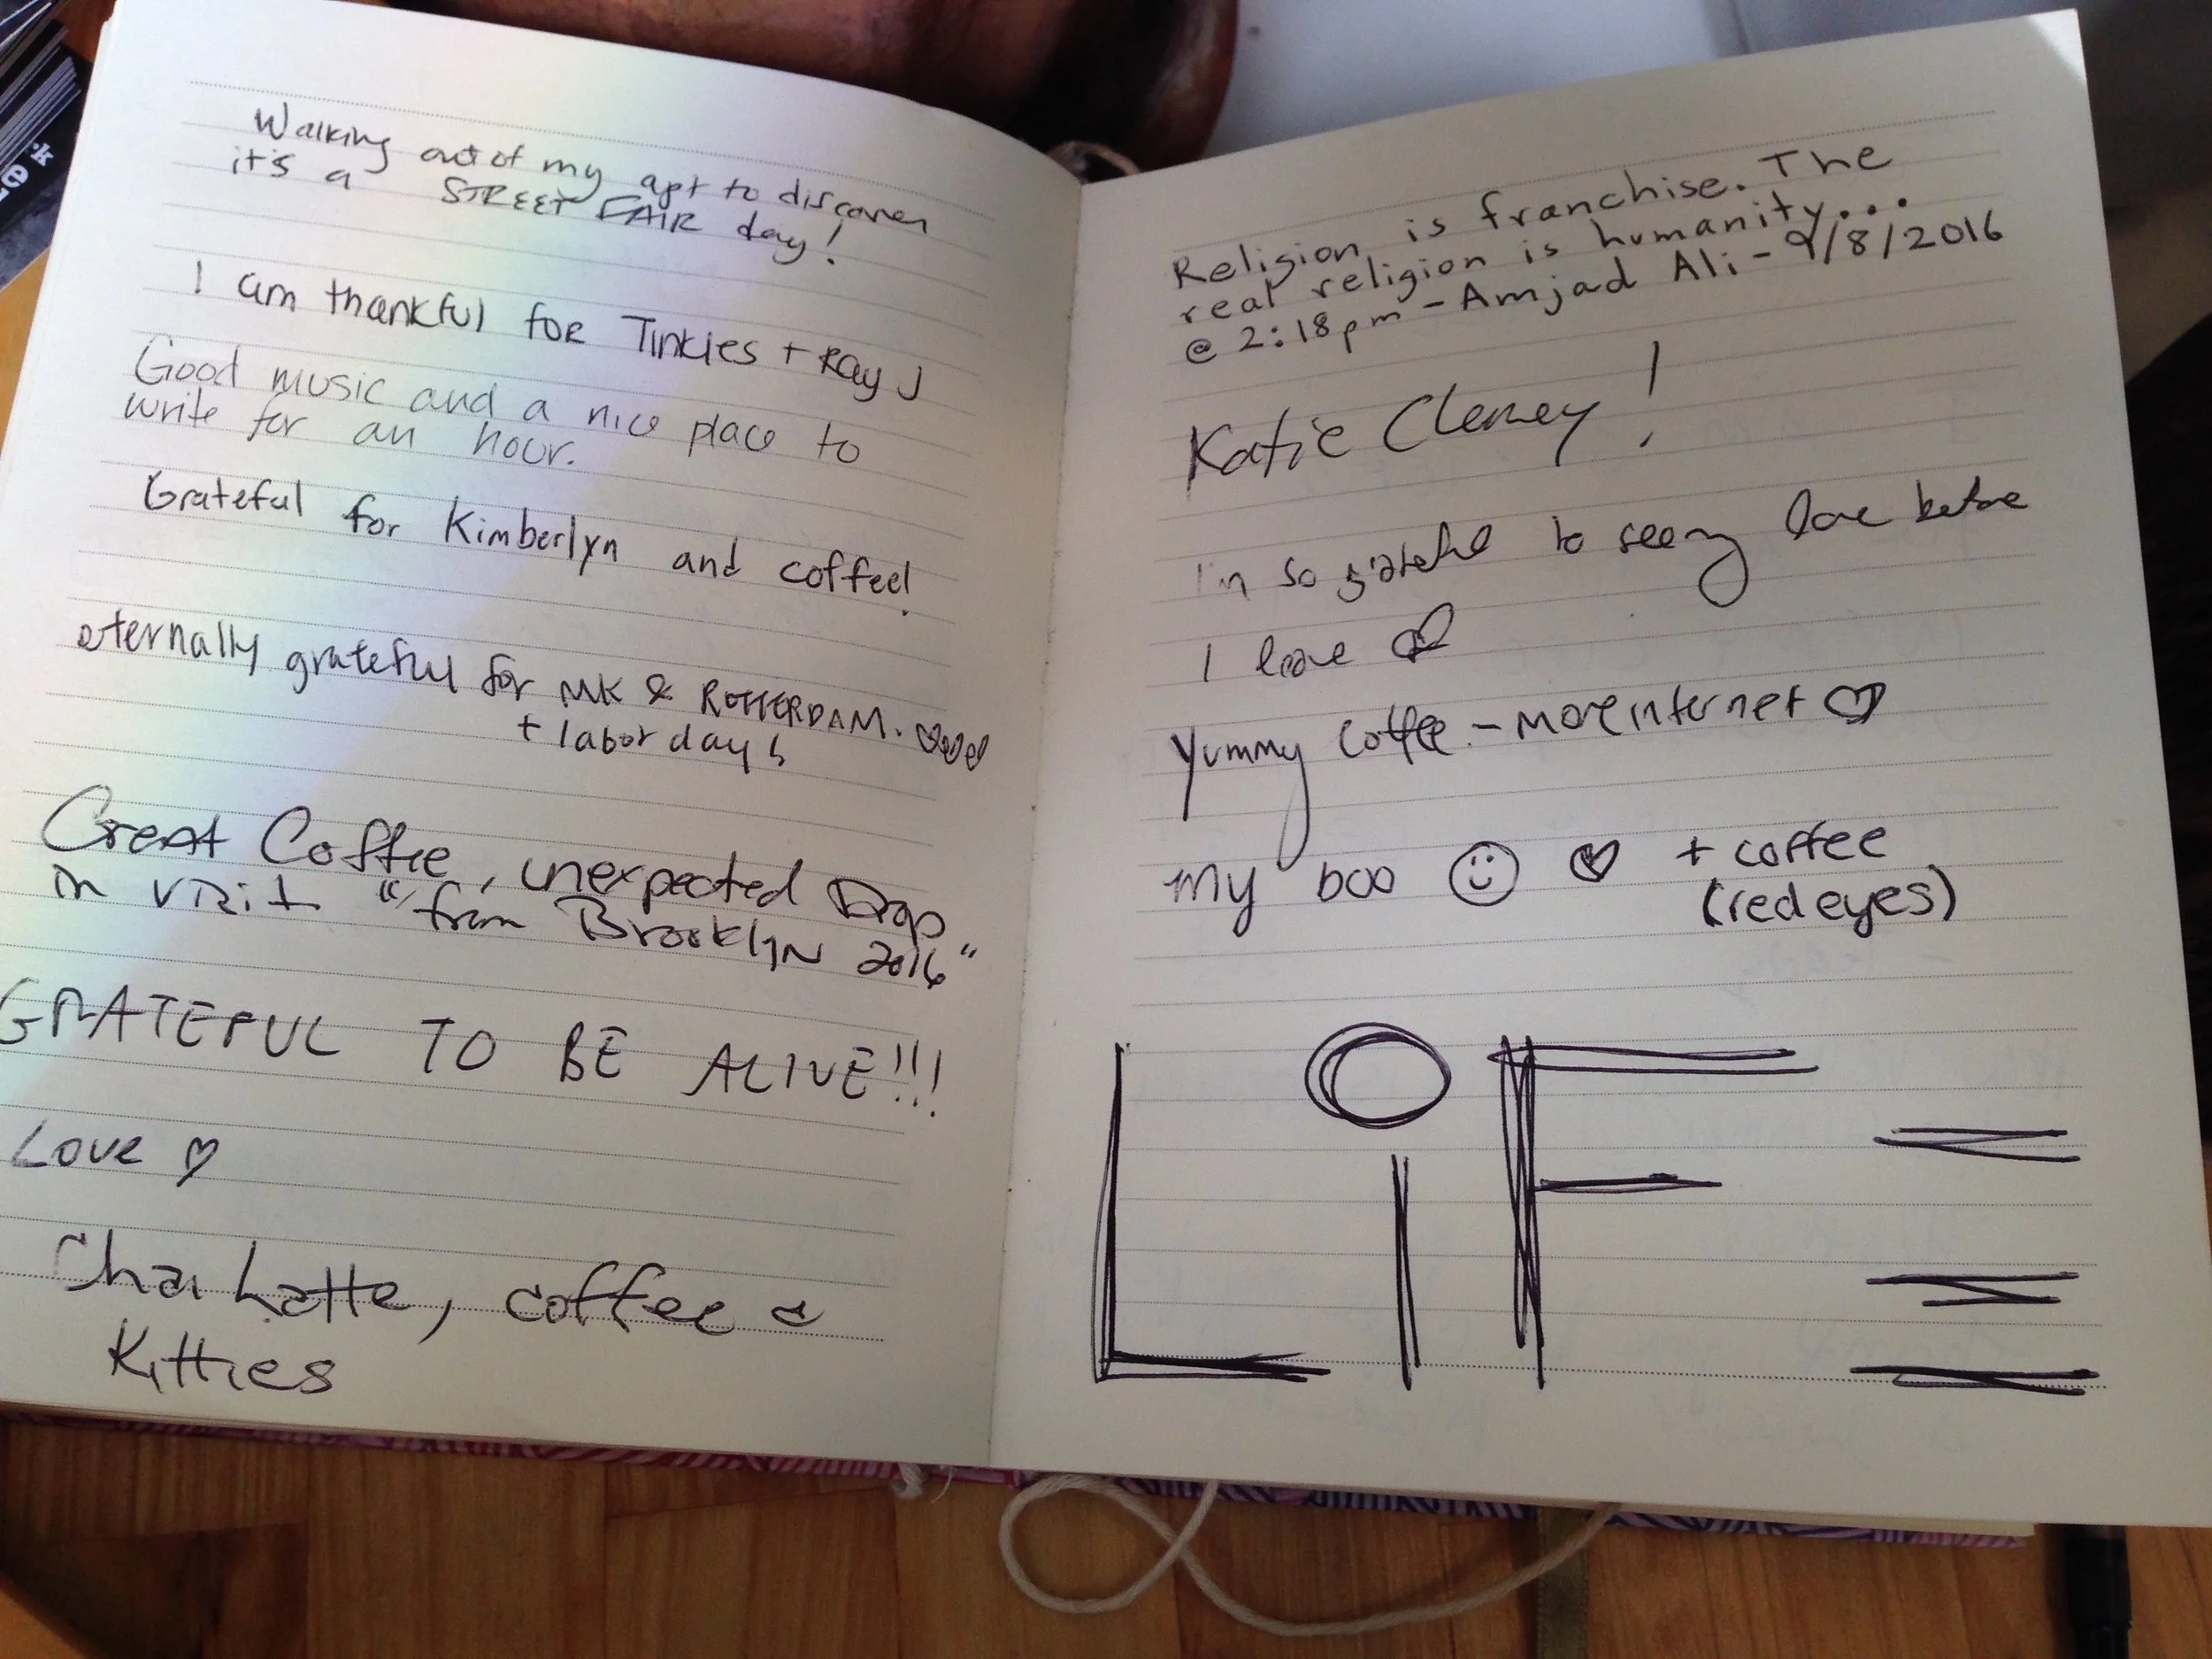 Walking out of my apt to discover
it's a STREET FAIR day!
I am thankful for Tinkies + Ray J
Good music and a nice place to
write for an hour.
Grateful for Kimberlyn and coffee!
eternally grateful for MK & ROTTERDAM.
+ labor day!
Great Coffee, unexpected Drop
in visit "from Brooklyn 2016"
GRATEFUL TO BE ALIVE!!!
Love
Chai Latte, coffee &
Kitties
Religion is franchise. The
real religion is humanity...
@ 2:18pm - Amjad Ali - 9/8/2016
Katie !
I'm so grateful to see my love before
I leave
Yummy coffee - more internet
my boo + coffee
(red eyes)
LiFE